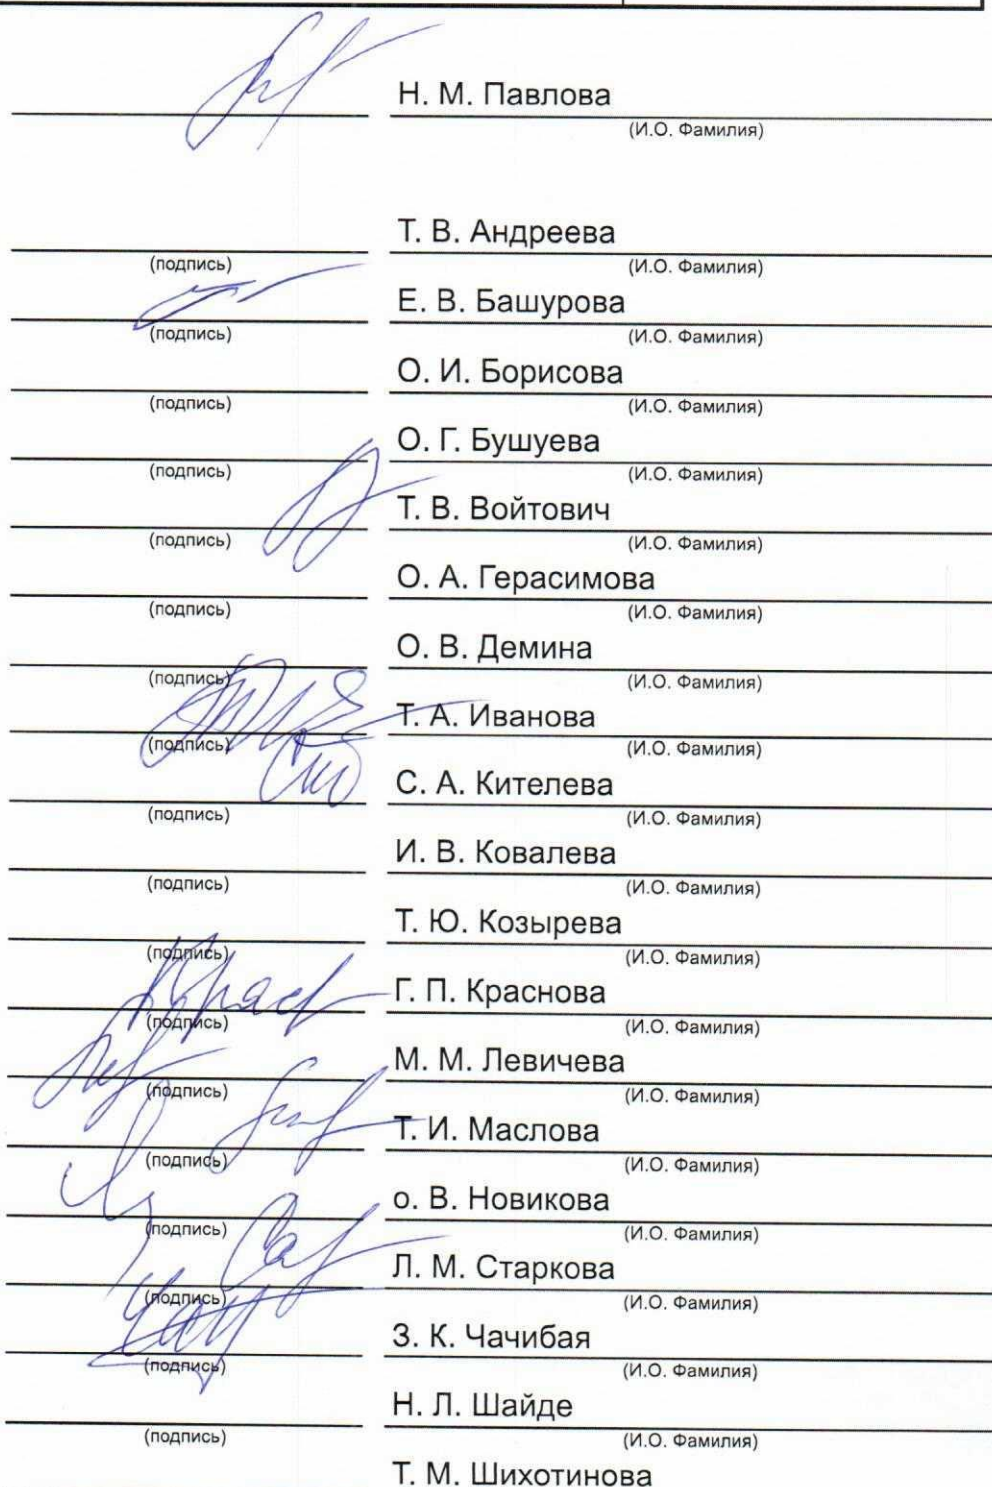 Н. М. Павлова
(И.О. Фамилия)
Т. В. Андреева
(подпись) (И.О. Фамилия)
Е. В. Башурова
(подпись) (И.О. Фамилия)
О. И. Борисова
(подпись) (И.О. Фамилия)
О. Г. Бушуева
(подпись) (И.О. Фамилия)
Т. В. Войтович
(подпись) (И.О. Фамилия)
О. А. Герасимова
(подпись) (И.О. Фамилия)
О. В. Демина
(подпись) (И.О. Фамилия)
Т. А. Иванова
(подпись) (И.О. Фамилия)
С. А. Кителева
(подпись) (И.О. Фамилия)
И. В. Ковалева
(подпись) (И.О. Фамилия)
Т. Ю. Козырева
(подпись) (И.О. Фамилия)
Г. П. Краснова
(подпись) (И.О. Фамилия)
М. М. Левичева
(подпись) (И.О. Фамилия)
Т. И. Маслова
(подпись) (И.О. Фамилия)
о. В. Новикова
(подпись) (И.О. Фамилия)
Л. М. Старкова
(подпись) (И.О. Фамилия)
З. К. Чачибая
(подпись) (И.О. Фамилия)
Н. Л. Шайде
(подпись) (И.О. Фамилия)
Т. М. Шихотинова